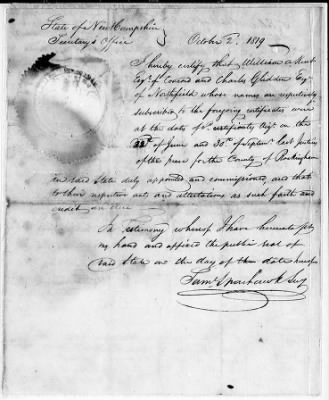 State of New Hampshire
Secretary's Office October 2. 1819 —
I hereby certify that William A Kent
Esqr. of Concord and Charles Glidden Esqr.
of Northfield whose names are respectively
subscribed to the foregoing certificates were
at the date of sd. certificates viz. on the
of June and 30th of Septemr. last Justices
of the peace for the County of Rockingham
in said State duly appointed and commissioned, and that
to their respective acts and attestations as such faith and
credit are due
In Testimony whereof I have hereunto set
my hand and affixed the public seal of
said State on the day of the date hereof
Saml. Sparhawk Secy